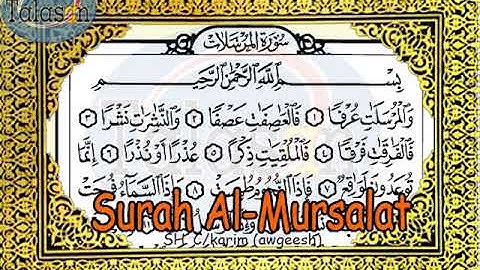 Talasan
سورة المرسلات
بِسْمِ ٱللَّهِ ٱلرَّحْمَٰنِ ٱلرَّحِيمِ
وَٱلْمُرْسَلَٰتِ عُرْفًا ١ فَٱلْعَٰصِفَٰتِ عَصْفًا ٢ وَٱلنَّٰشِرَٰتِ نَشْرًا ٣
فَٱلْفَٰرِقَٰتِ فَرْقًا ٤ فَٱلْمُلْقِيَٰتِ ذِكْرًا ٥ عُذْرًا أَوْ نُذْرًا ٦ إِنَّمَا
تُوعَدُونَ لَوَٰقِعٌ ٧ فَإِذَا ٱلنُّجُومُ طُمِسَتْ ٨ وَإِذَا ٱلسَّمَآءُ فُرِجَتْ
Surah Al-Mursalat
SH. C/karim (awgeesh)